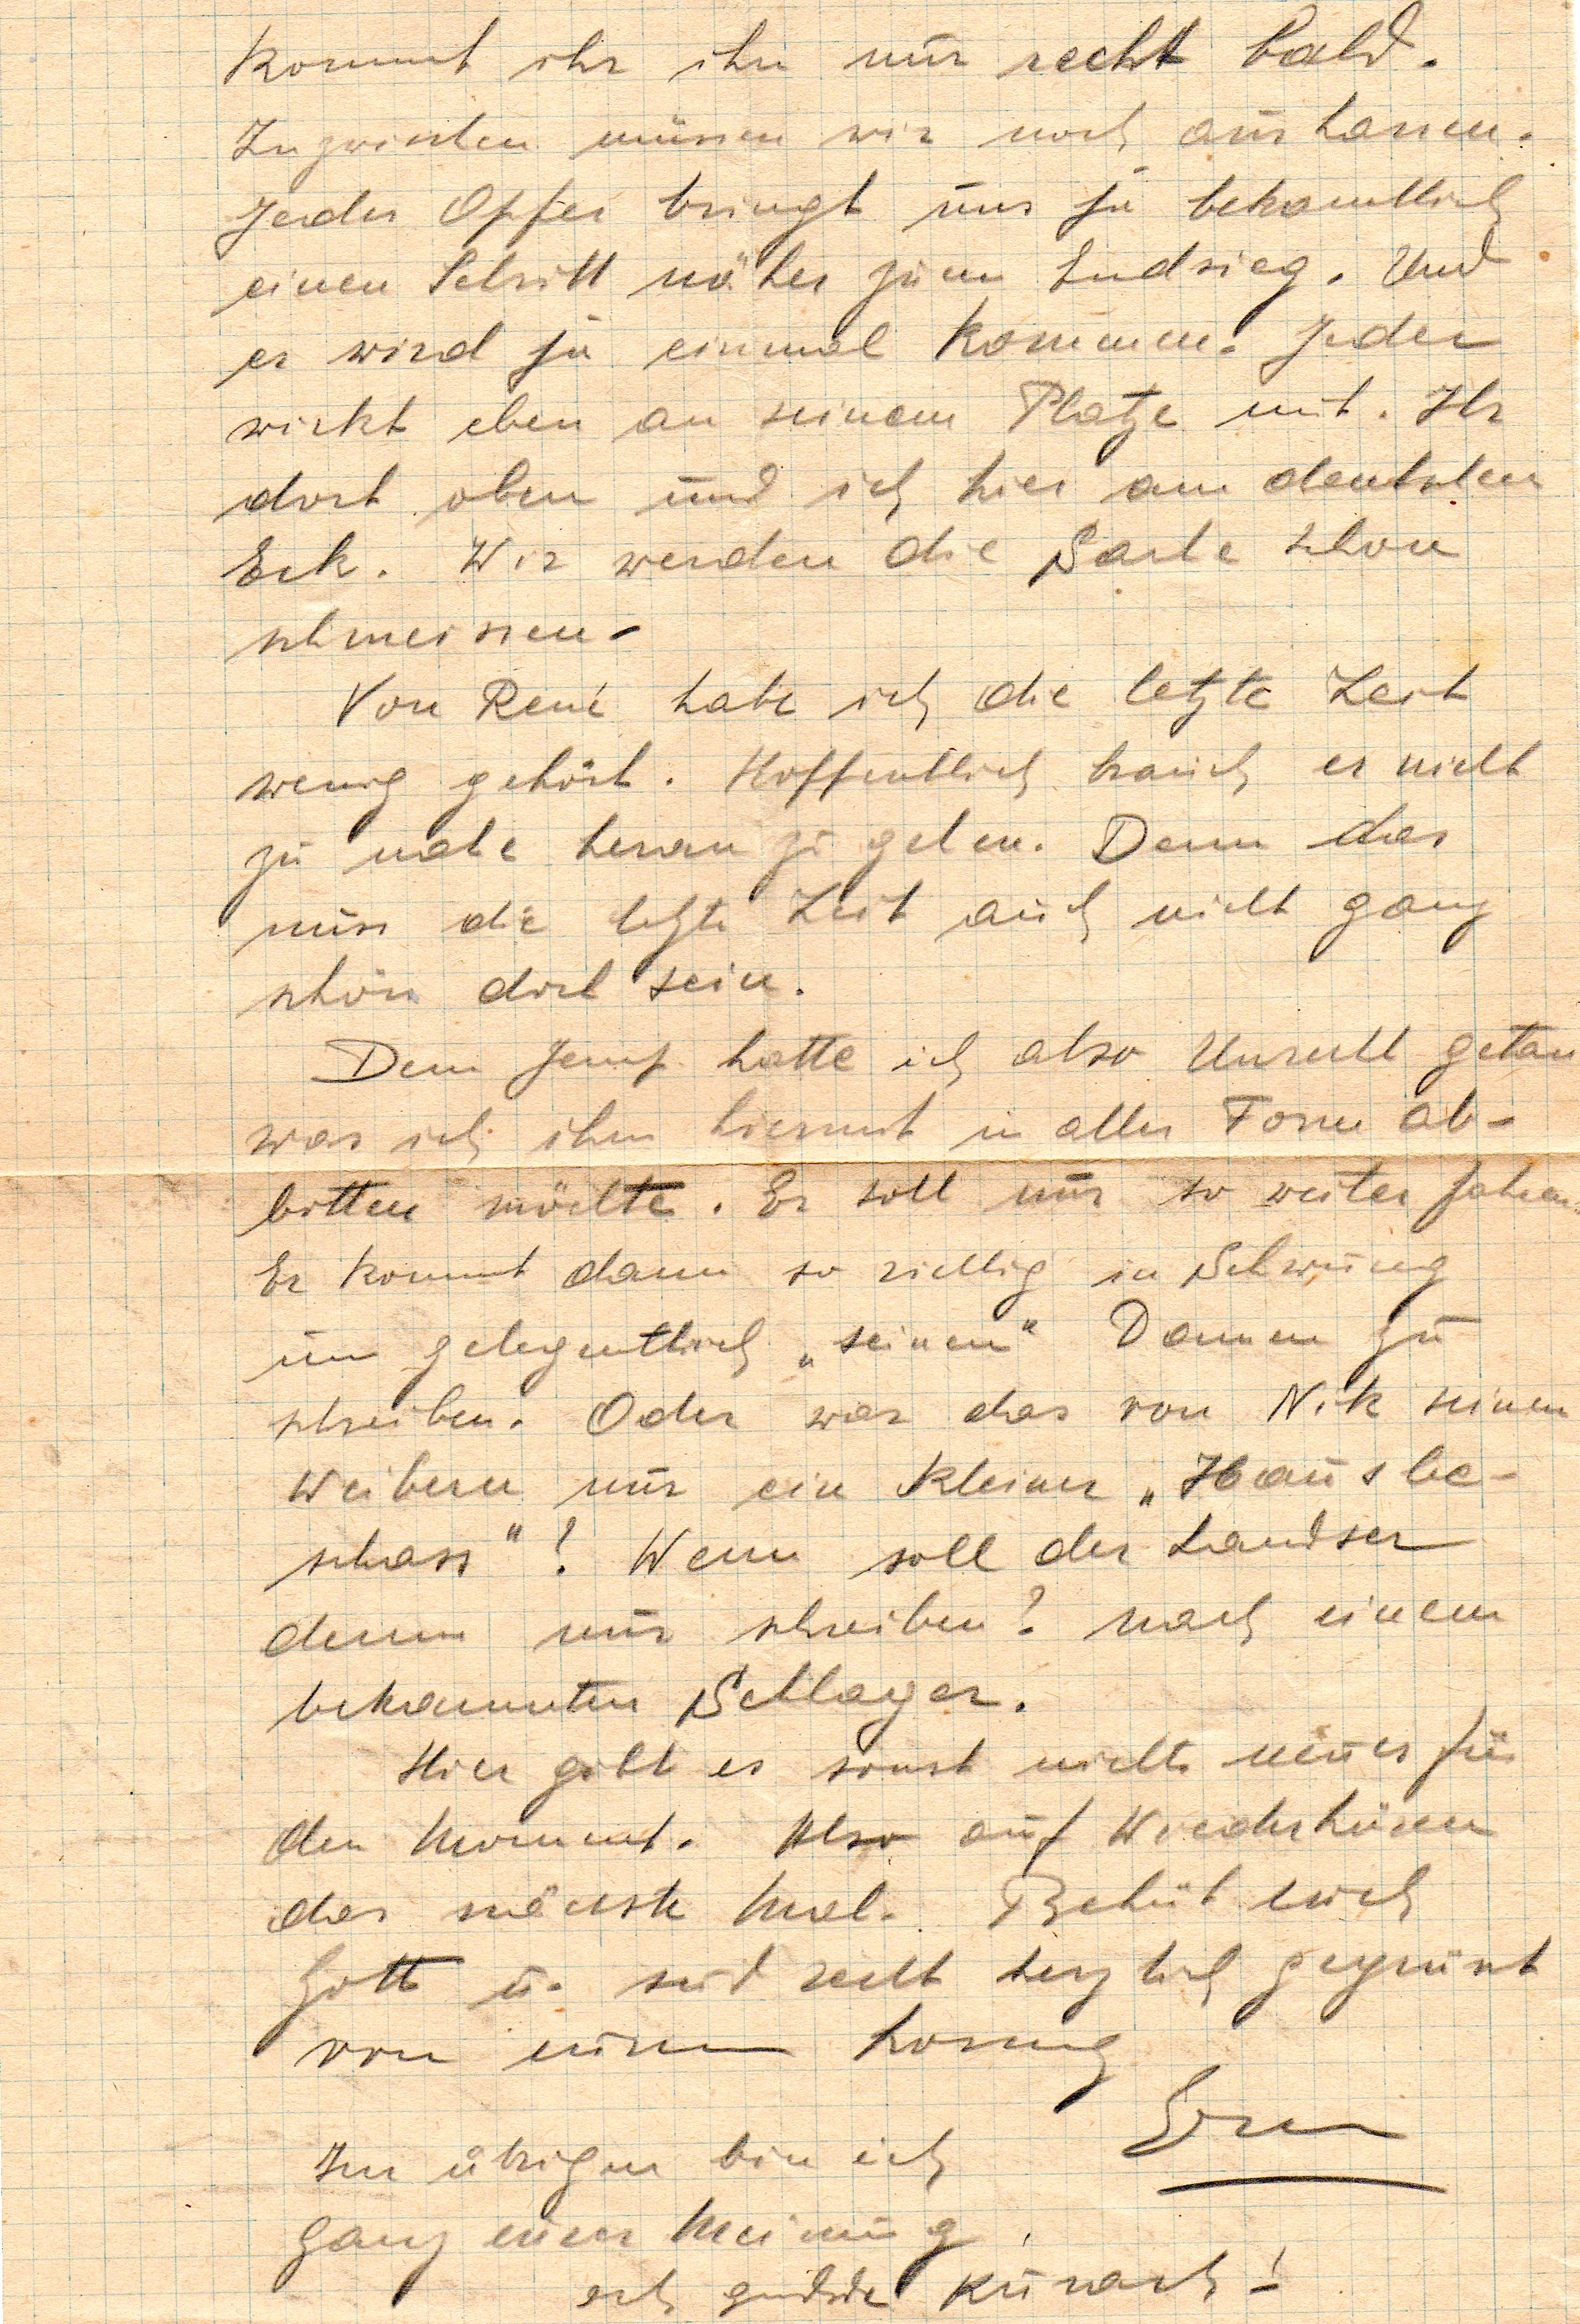 kommt ihr ihn nur recht bald.
Inzwischen müssen wir noch ausharren.
Jedes Opfer bringt uns ja bekanntlich
einen Schritt näher zum Endsieg. Und
er wird ja einmal kommen. Jeder
wirkt eben an seinem Platze mit. Ihr
dort oben und ich hier am deutschen
Eck. Wir werden die Sache schon
schmeissen.
Von René habe ich die letzte Zeit
wenig gehört. Hoffentlich brauch er nicht
zu nahe heran zu gehen. Denn das
muss die letzte Zeit auch nicht ganz
schön dort sein.
Dem Jemp hatte ich also Unrecht getan
was ich ihm hiermit in aller Form ab-
bitten möchte. Er soll nur so weiter fahren.
Er kommt dann so richtig in Schwung
um gelegentlich „seinen" Damen zu
schreiben. Oder war das von Nik seinen
Weibern nur ein kleiner
Wenn soll der Landser
denn nur schreiben? nach einem
bekannten Schlager.
Hier gibt es sonst nichts neues für
den Moment. Also auf Wiederhören
das nächste Mal. Behüt euch
Gott u. seid recht herzlich gegrüsst
von eurem
Im übrigen bin ich
ganz eurer Meinung